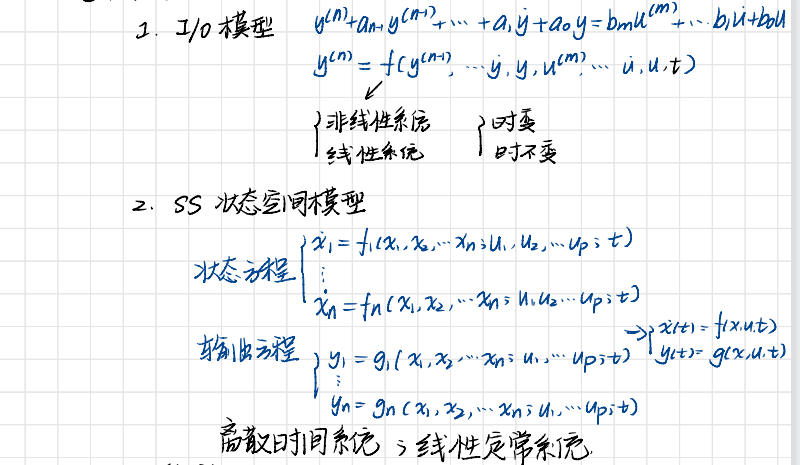 1. I/O 模型 y⁽ⁿ⁾+aₙ₋₁y⁽ⁿ⁻¹⁾+⋯+a₁ẏ+a₀y=bₘu⁽ᵐ⁾+⋯b₁u̇+b₀u
y⁽ⁿ⁾=f(y⁽ⁿ⁻¹⁾,⋯ẏ,y,u⁽ᵐ⁾,⋯u̇,u,t)
↙
{非线性系统 {时变
线性系统 时不变
2. SS 状态空间模型
状态方程 {ẋ₁=f₁(x₁,x₂,⋯xₙ;u₁,u₂,⋯uₚ;t)
⋮
ẋₙ=fₙ(x₁,x₂,⋯xₙ;u₁,u₂⋯uₚ;t)
→{ẋ(t)=f(x,u,t)
y(t)=g(x,u,t)
输出方程 {y₁=g₁(x₁,x₂⋯xₙ;u₁,⋯uₚ;t)
⋮
yₙ=gₙ(x₁,x₂,⋯xₙ;u₁,⋯uₚ;t)
离散时间系统;线性定常系统